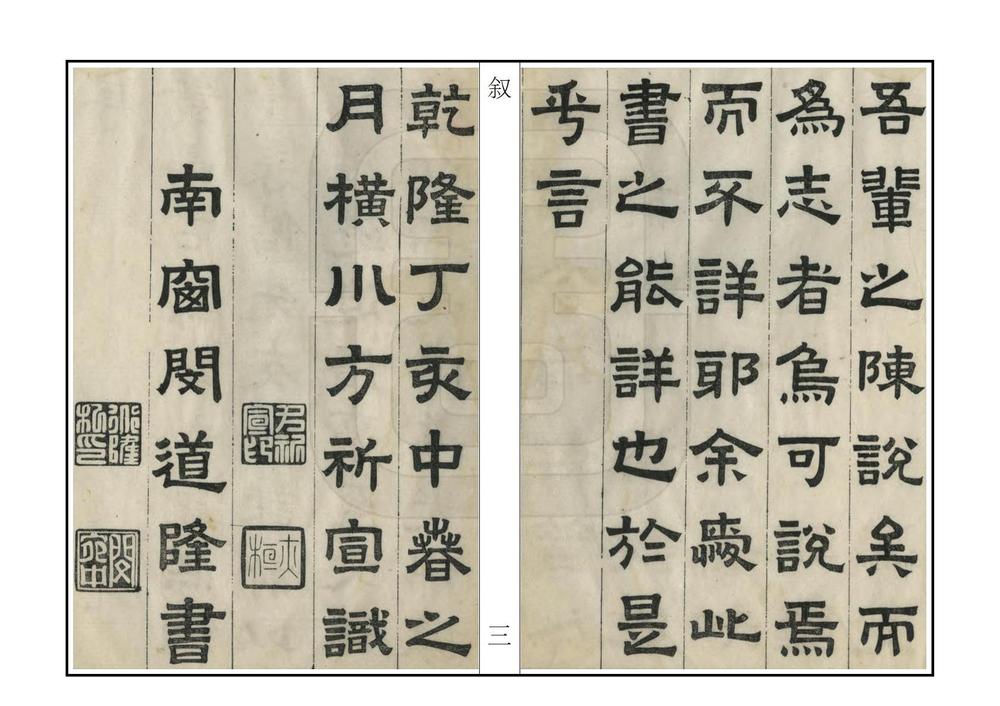 吾輩之陳說矣而
為志者烏可說焉
而不詳耶余慶此
書之能詳也於是
乎言
叙
三
乾隆丁亥中春之
月橫川方祈宣識
南窗閔道隆書